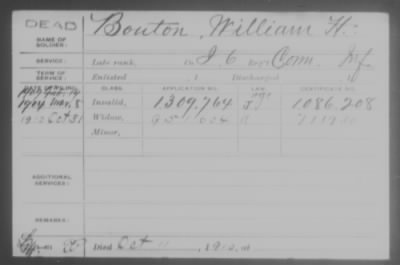 DEAD
NAME OF SOLDIER: Bouton, William H.
SERVICE: Late rank, Co. I, 6 Reg't Conn. Inf.
TERM OF SERVICE: Enlisted , 1 Discharged , 1
DATE OF FILING. CLASS. APPLICATION NO. LAW. CERTIFICATE NO.
1904 Mar. 8 Invalid, 1.309.764 1086.208
Oct 31 Widow,
Minor,
ADDITIONAL SERVICES:
REMARKS:
Died Oct 11, 1910, at